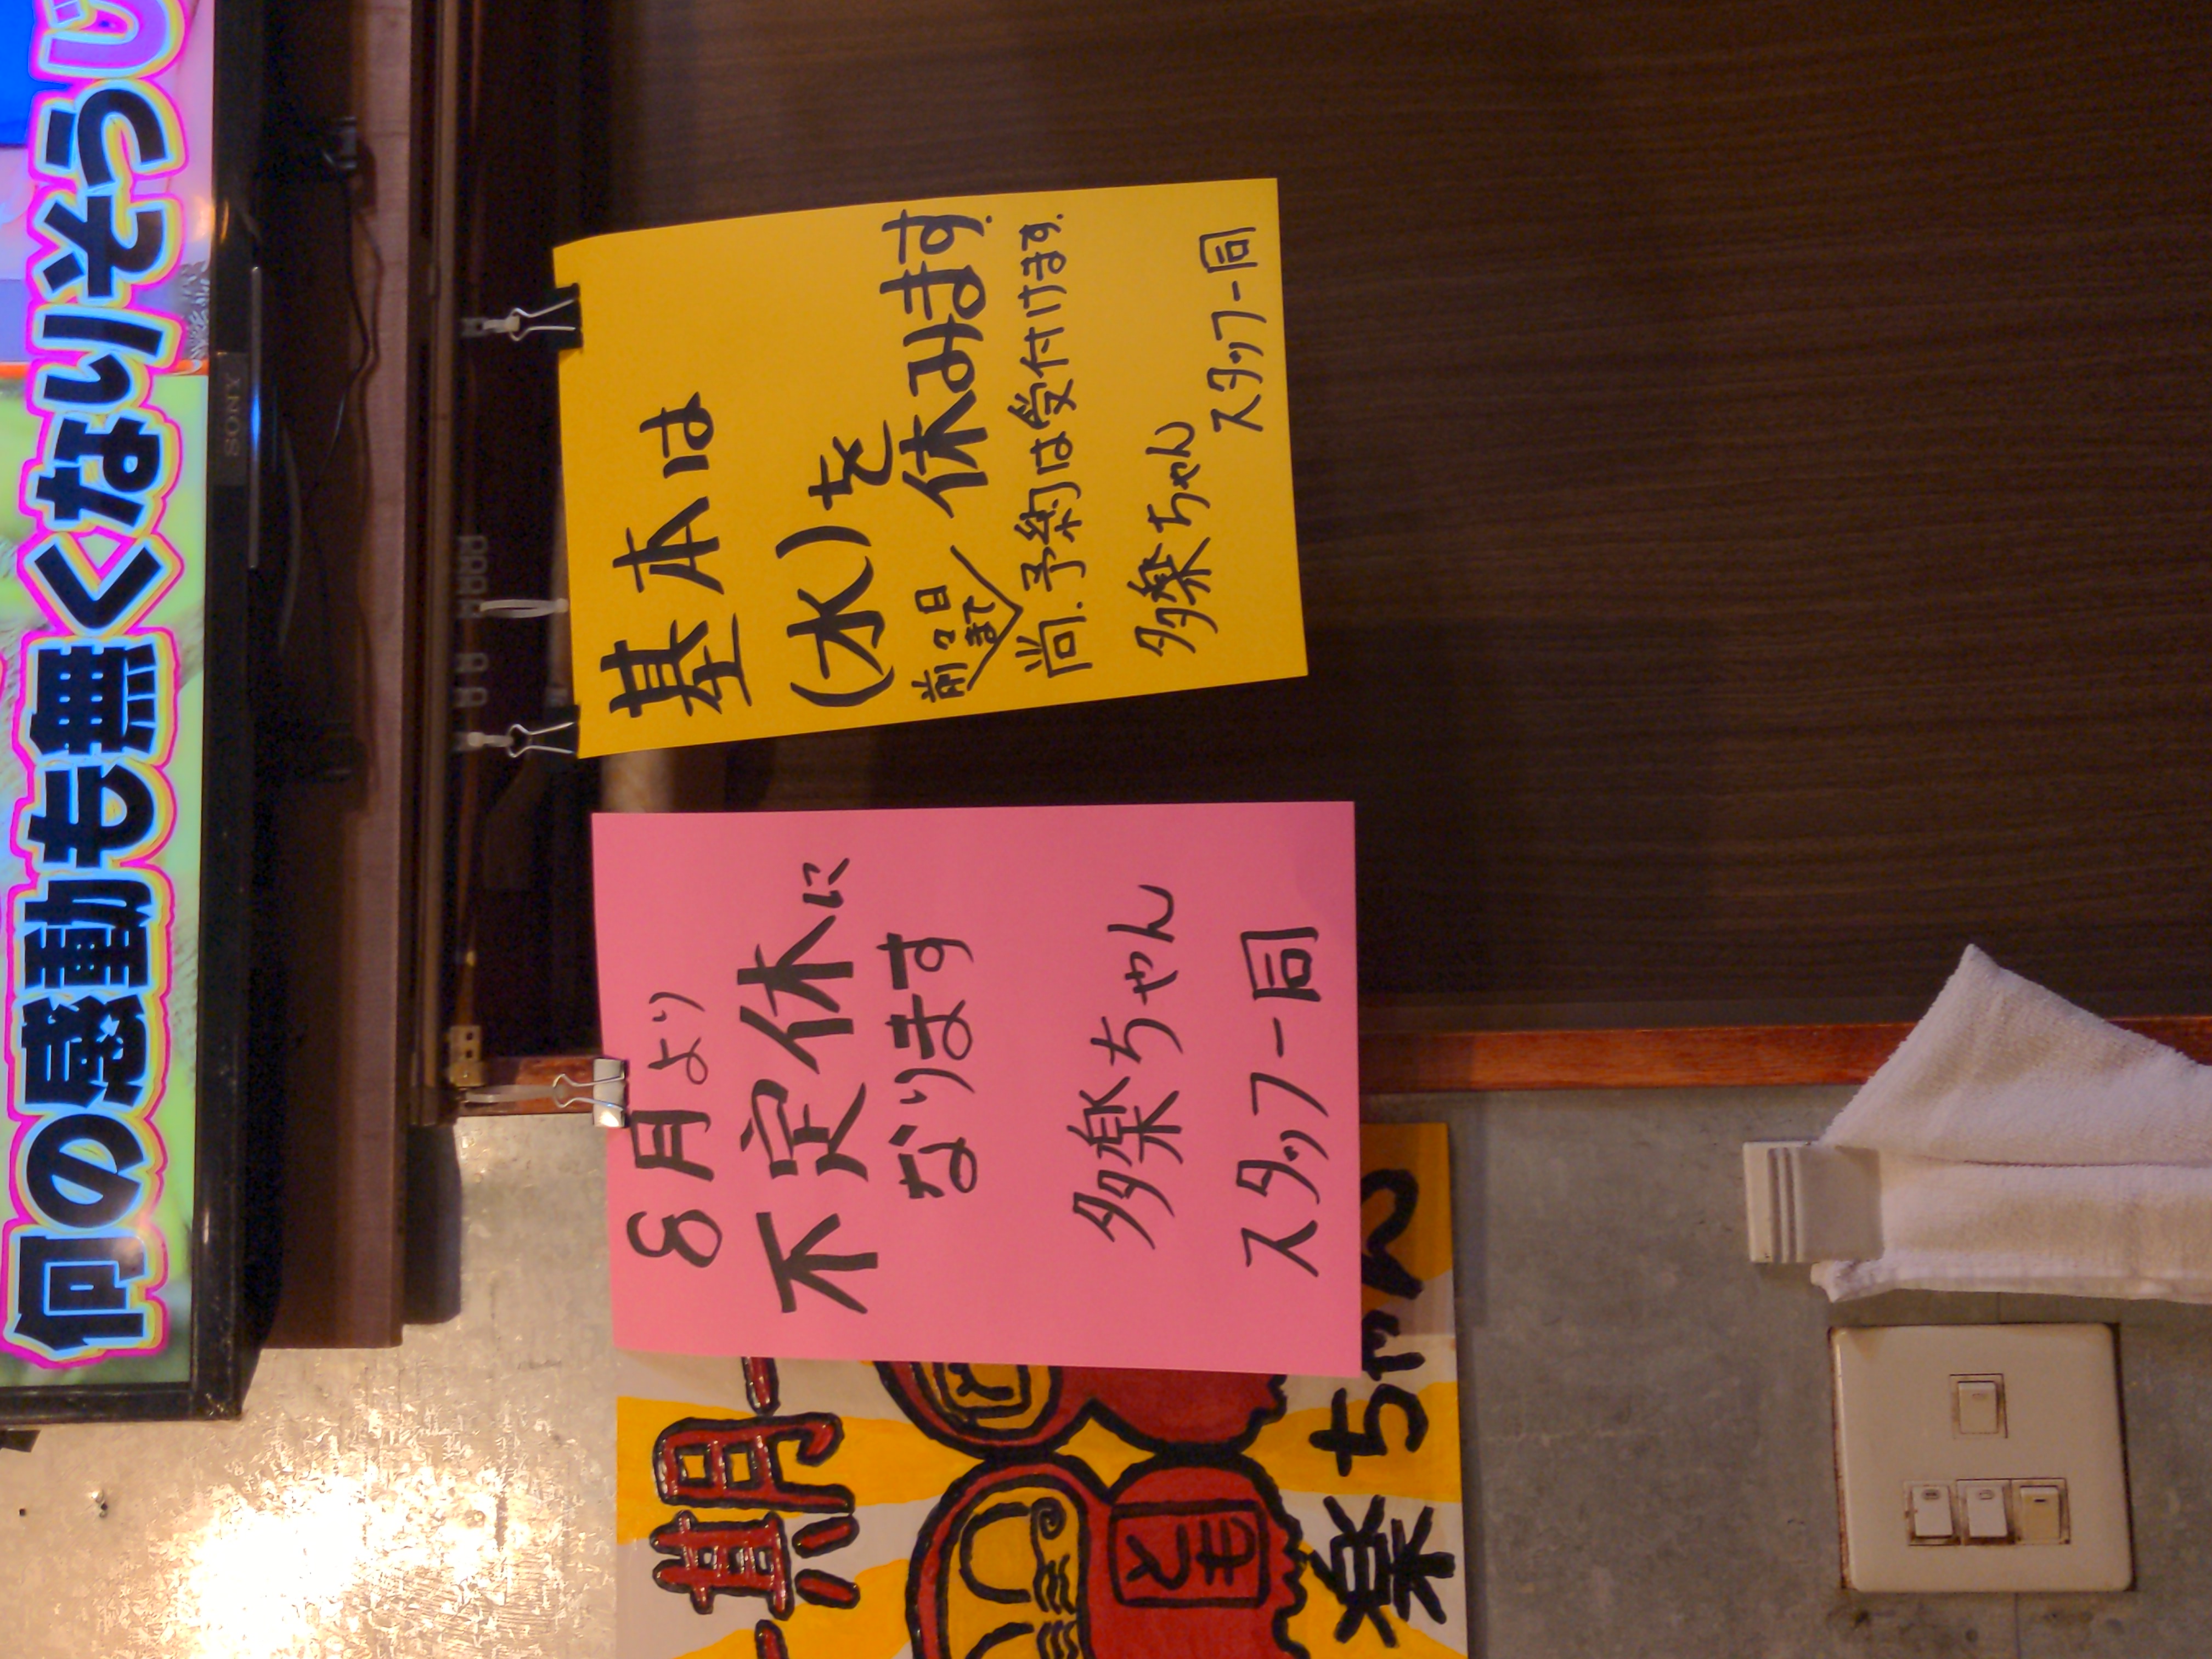 何の感動も無くないそうッ
SONY
8月より
不定休に
なります
多楽ちゃん
スタッフ一同
基本は
(水)を
休みます.
前々日
まで
尚.予約は受付けます.
多楽ちゃん
スタッフ一同
とも
楽ちゃん